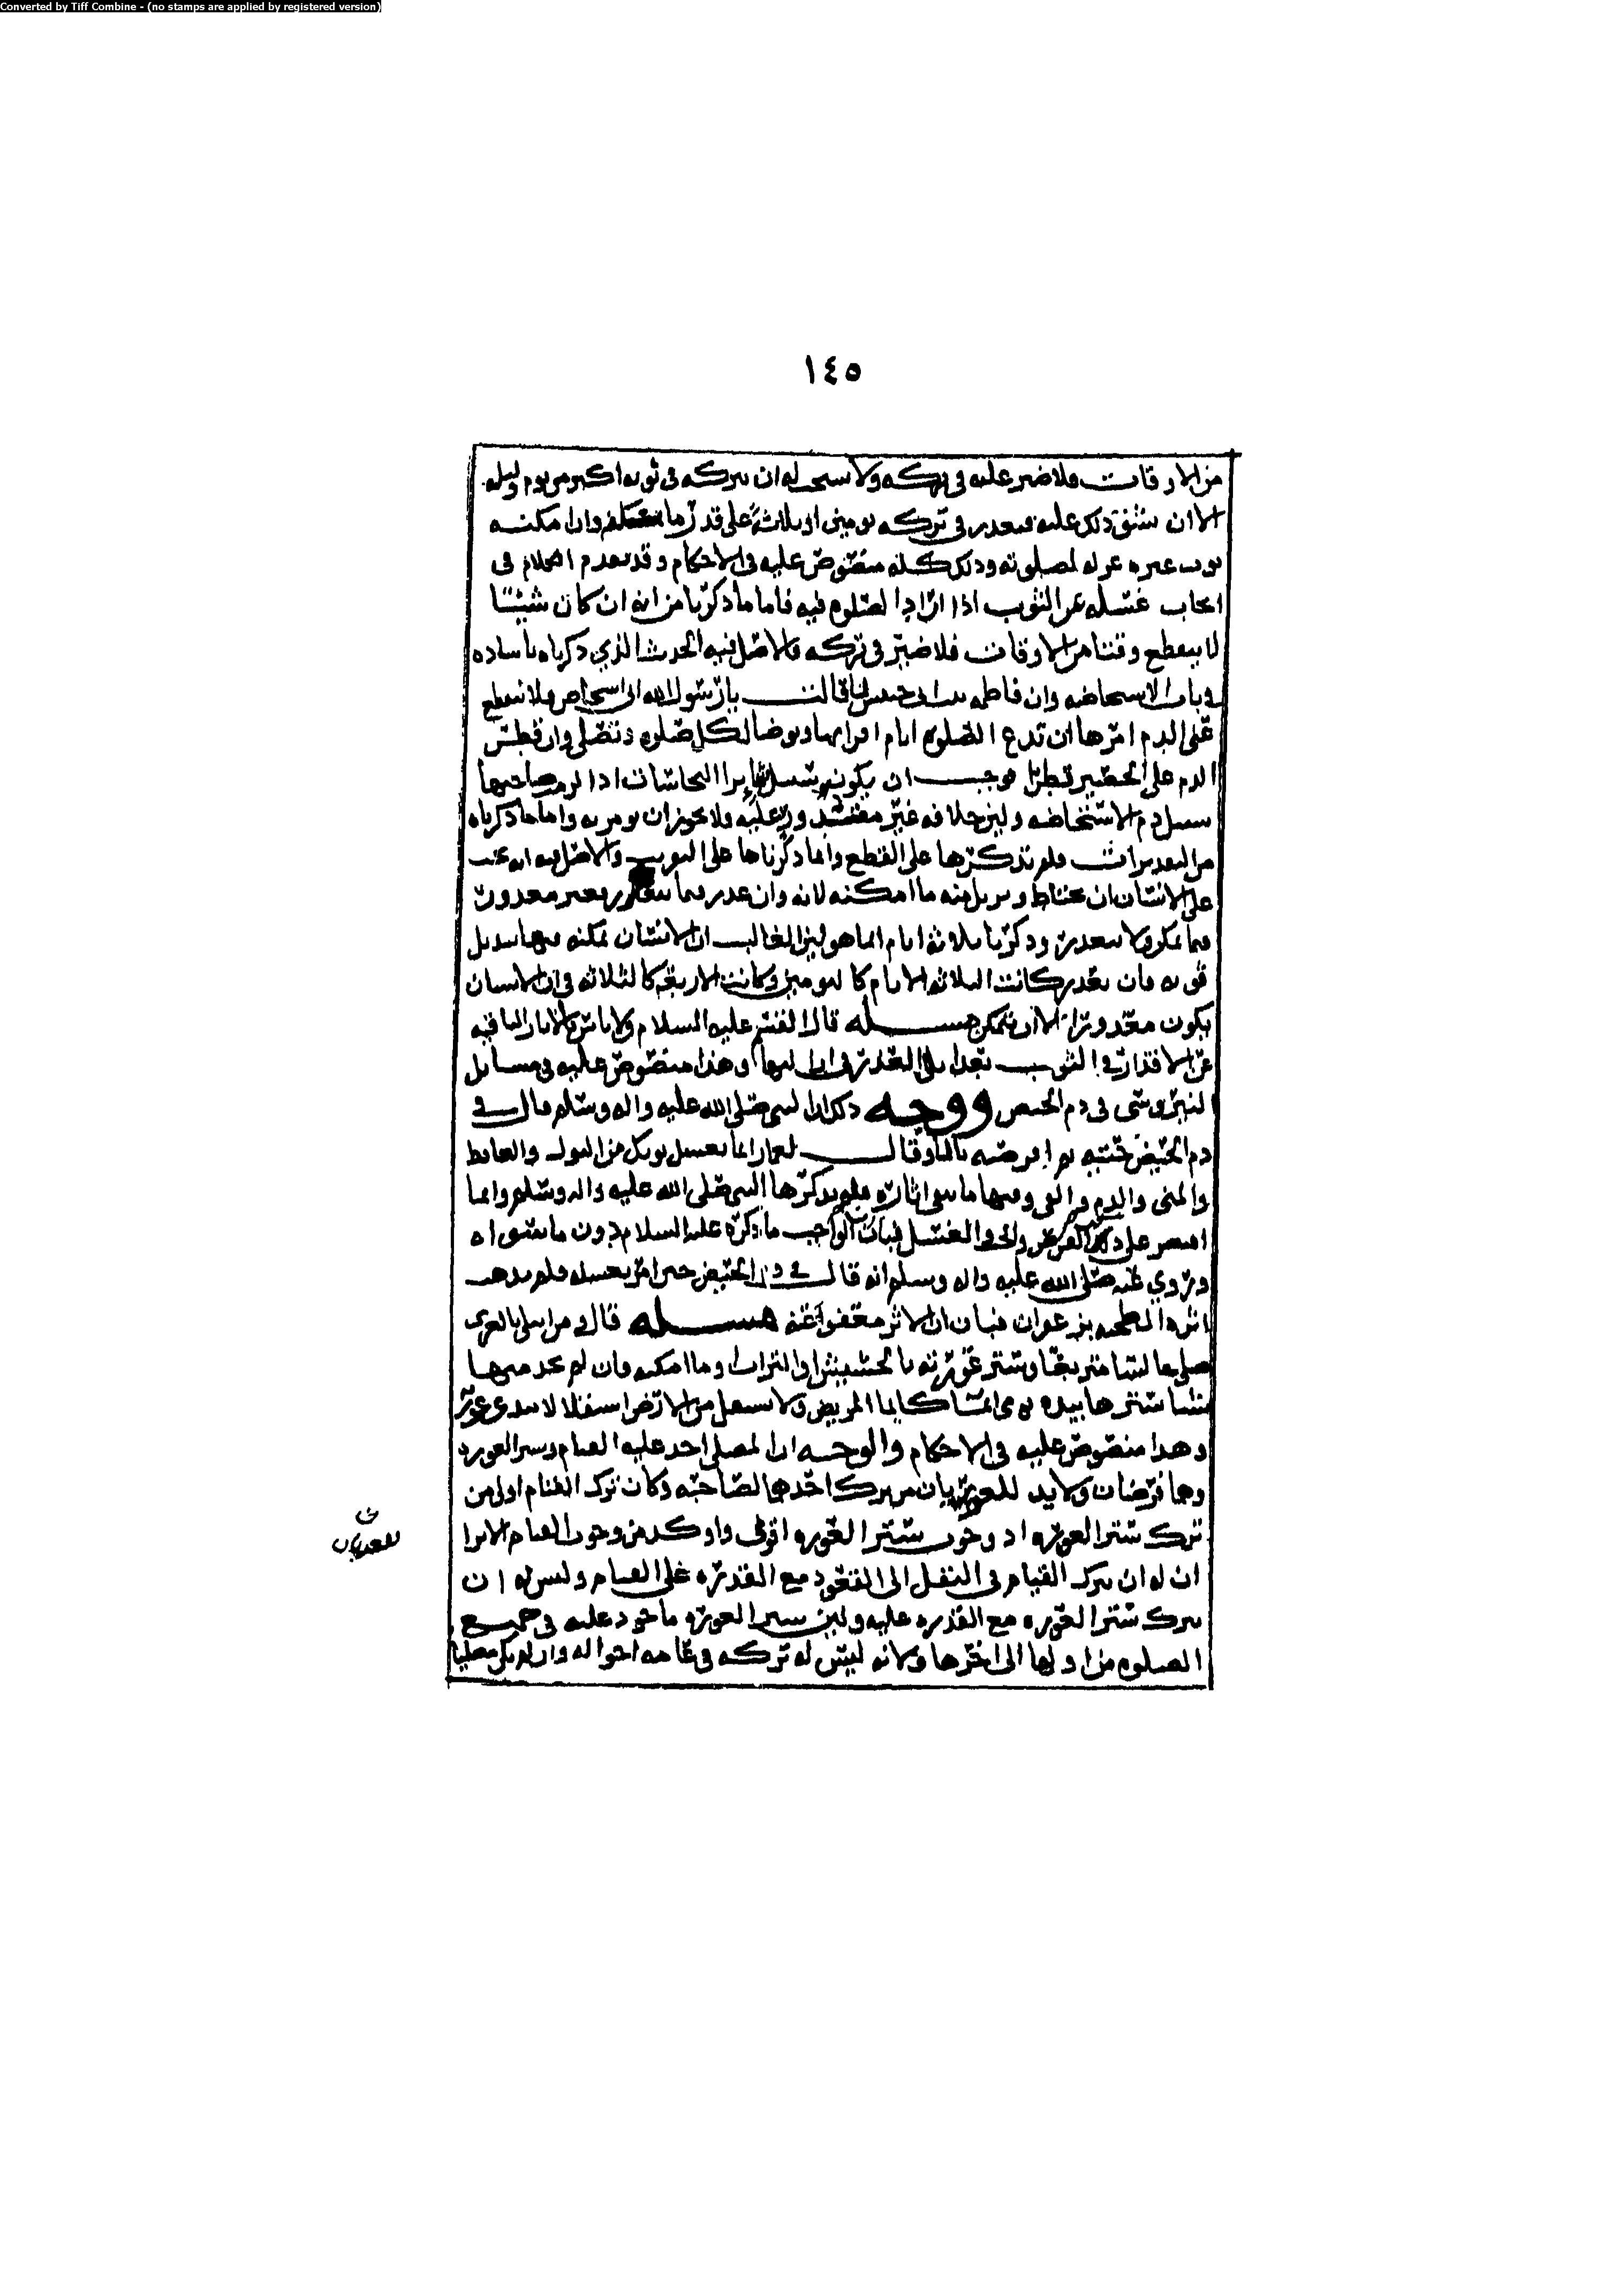 Converted by Tiff Combine - (no stamps are applied by registered version)
١٤٥
من الاوقات فلا ضير عليه في تركه ولا يستحب له ان يتركه في ثوبه اكثر من يوم وليلة
الا ان يشق ذلك عليه فيعذر في تركه يومين او ثلاثة على قدر ما يمكنه واذا امكنه
ثوب غيره عزله لصلوته وذلك كله منصوص عليه في الاحكام وقد تقدم الكلام في
ايجاب غسله من الثوب اذا اراد الصلوة فيه فاما ما ذكرنا من انه ان كان شيئا
لا ينقطع وقتا من الاوقات فلا ضير في تركه فالاصل فيه الحديث الذي ذكرناه باسناده
في باب الاستحاضة وان فاطمة بنت ابي حبيش لما قالت يا رسول الله اني استحاض فلا ينقطع
عني الدم امرها ان تدع الصلوة ايام اقرائها وتوضا لكل صلوة وتصلي وان قطر
الدم على الحصير قطرا فوجب ان يكون سبيل سائر النجاسات اذا لزمت صاحبها
سبيل دم الاستحاضة وليس خلافه غير مفسد ولا يجوز ان يومر به واما ما ذكرناه
من التقديرات فلم نذكرها على القطع وانما ذكرناها على التقريب والاصل فيه انه يجب
على الانسان ان يحتاط ويزيل منه ما امكنه لانه وان عذر فيما يتعذر فغير معذور
فيما يمكن ولا يتعذر وذكرنا ثلاثة ايام انما هو لان الغالب ان الانسان يمكنه فيها تبديل
ثوبه فان تعذر كانت الثلاثة الايام كاليومين وكانت الاربعة كالثلاثة في ان الانسان
يكون معذورا الا ان يتمكن مسئلة قال القسم عليه السلام ولا باس بالاثار الباقية
من الاقذار في الثوب بعد ابلاء العذر في ازالتها وهذا منصوص عليه في مسائل
النيروسي في دم الحيض ووجه ذلك ان النبي صلى الله عليه واله وسلم قال في
دم الحيض حتيه ثم اقرصيه بالماء وقال لعمار انما تغسل ثوبك من البول والغائط
والمني والدم والقي وفيها ما يبقى اثاره فلم يذكرها النبي صلى الله عليه واله وسلم وانما
اقتصر على ذكر القرص والحت والغسل فبان ان الواجب ما ذكره عليه السلام دون ما سواه
وروي عنه صلى الله عليه واله وسلم انه قال في دم الحيض حين امر بغسله فلم يذهب
اثره الطخيه بزعفران فبان ان الاثر معفو عنه مسئلة قال ومن ابتلي بالعري
صلى جالسا متربعا وستر عورته بالحشيش او التراب وما امكنه فان لم يجد منها
شيئا سترها بيده يومي ايماء كايماء المريض ولا يستقل من الارض استقلالا تبدى عورته
وهذا منصوص عليه في الاحكام والوجه ان المصلي اخذ عليه القيام وستر العورة
وهما فرضان ولا بد للعريان من ترك احدهما لصاحبه وكان ترك القيام اولى من
ترك ستر العورة اذ وجوب ستر العورة اقوى واوكد من وجوب القيام الا ترا
ان له ان يترك القيام في النفل الى القعود مع القدرة على القيام وليس له ان
يترك ستر العورة مع القدرة عليه ولان ستر العورة ماخوذ عليه في جميع
الصلوة من اولها الى اخرها ولانه ليس له تركه في عامة احواله وان لم يكن مصليا
للعريان